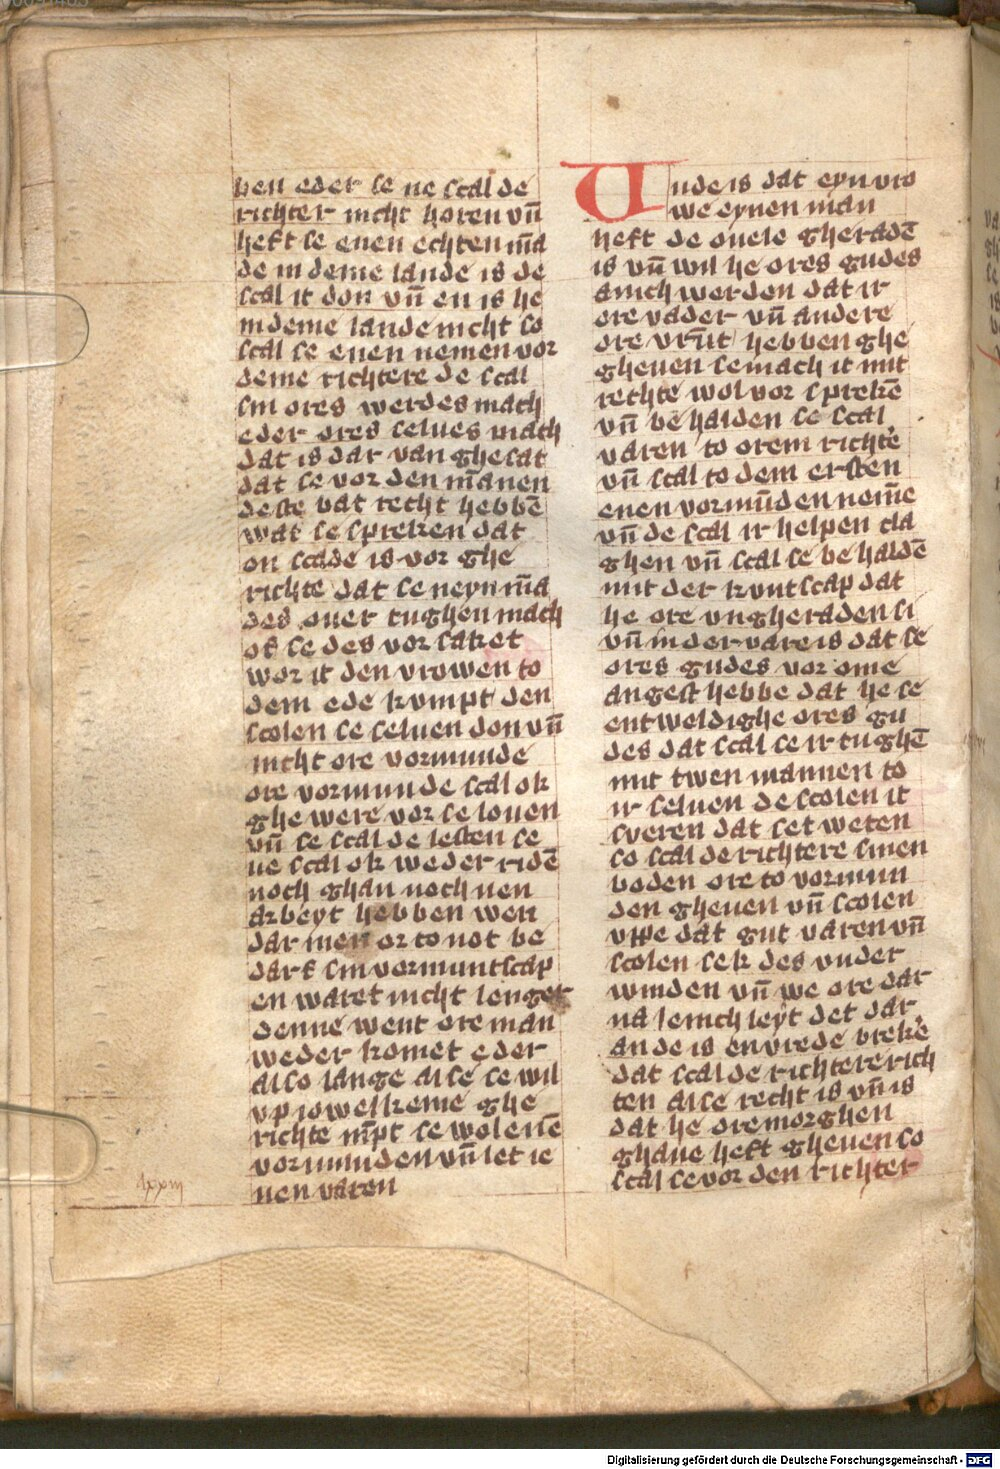 ben eder se ne scal de
richter nicht horen vn̄
heft se enen echten m̄a
de in deme lande is de
scal it don vn̄ en is he
in deme lande nicht so
scal se enen nemen vor
deme richtere de scal
sin ores werdes mach
eder ores selues mach
dat is dar van ghesat
dat se vor den m̄anen
deste bat recht hebbē
wat se spreken dat
on scade is vor ghe
richte dat se neyn m̄a
des ouer tughen mach
of se des vor saket
wor it den vrowen to
dem ede kvmpt den
scolen se seluen don vn̄
nicht ore vormunde
ore vormunde scal ok
ghe were vor se louen
vn̄ se scal de lesten se
ne scal ok weder ridē
noch ghan noch nen
arbeyt hebben wen
dar men or to not be
darf sin vormuntscap
en waret nicht lenger
denne went ore man
weder komet eder
also lange alse se wil
vp iowelkeme ghe
richte m̄pt se wol enē
vormunden vn̄ let ie
nen varen
lxxiii
Unde is dat eyn vro
we eynen man
heft de ouele gheradē
is vn̄ wil he ores gudes
anich werden dat ir
ore vader vn̄ andere
ore vrūt hebben ghe
gheuen se mach it mit
rechte wol vor sprekē
vn̄ be halden se scal
varen to orem richte
vn̄ scal to dem ersten
enen vormūden nem̄e
vn̄ de scal ir helpen cla
ghen vn̄ scal se be haldē
mit der kuntscap dat
he ore vngheraden si
vn̄ in der vare is dat se
ores gudes vor ome
angest hebbe dat he se
entweldighe ores gu
des dat scal se ir tughē
mit twen mannen to
ir seluen de scolen it
sveren dat set weten
so scal de richtere sinen
boden ore to vormun
den gheuen vn̄ scolen
vppe dat gut varen vn̄
scolen sek des vnder
winden vn̄ we ore dar
na lemch leyt det dar
an de is en vrede brekē
dat scal de richtere rich
ten alse recht is vn̄ is
dat he ore morghen
ghaue heft gheuen so
scal se vor den richter
Digitalisierung gefördert durch die Deutsche Forschungsgemeinschaft - DFG